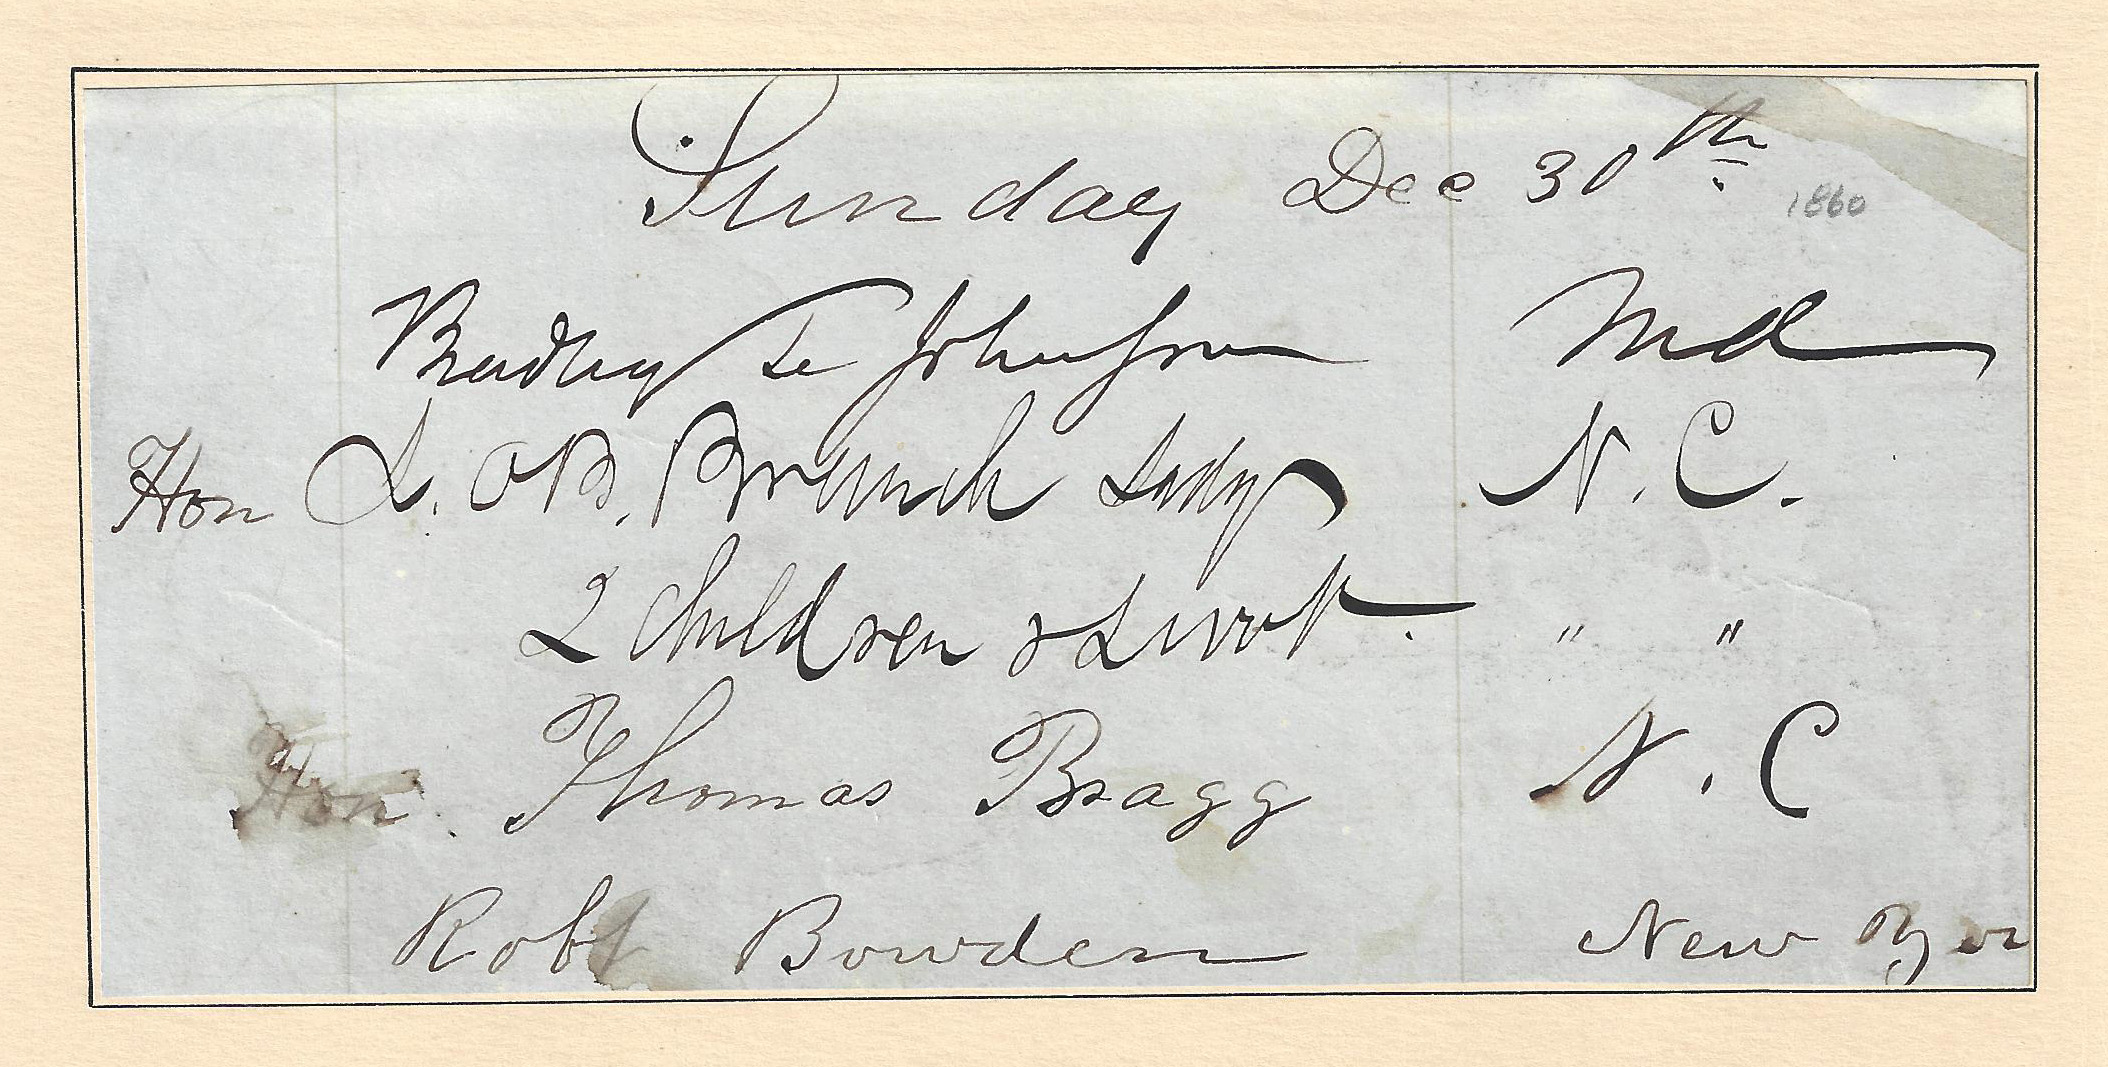 Sunday Dec 30th 1860
Bradley T Johnson Md
Hon L. O B. Branch Lady N. C.
2 Children & Servt. " "
Hon. Thomas Bragg N. C
Robt Bowden New Yor